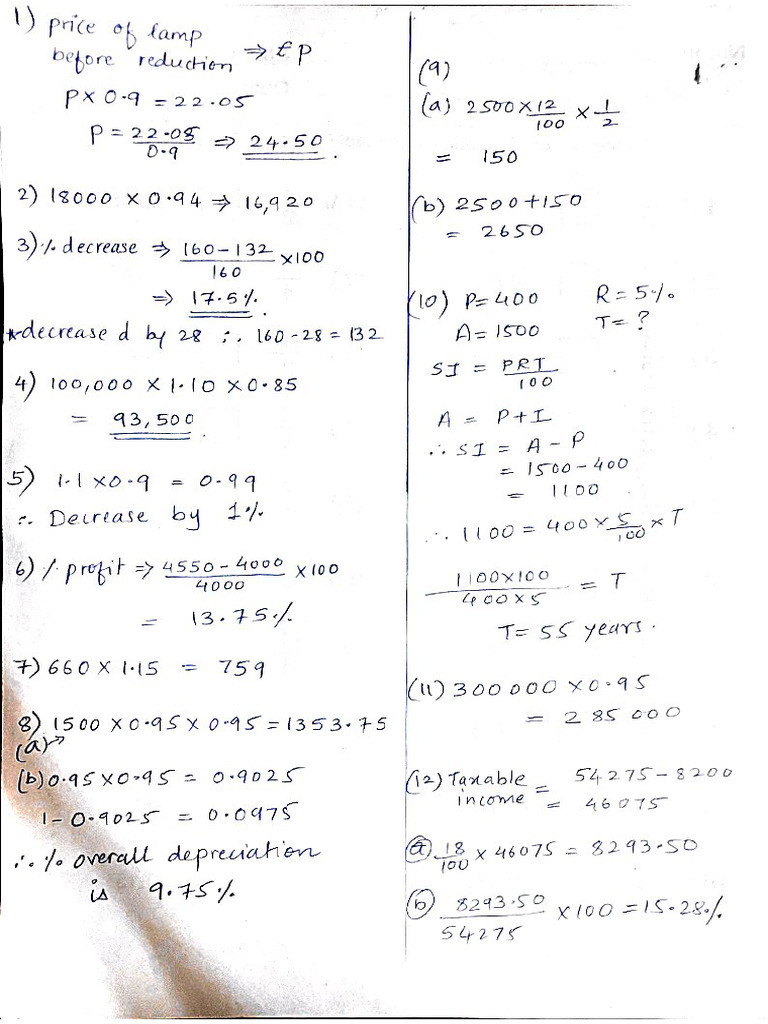 1) price of lamp
before reduction ⇒ £ p
P × 0.9 = 22.05
P = 22.05/0.9 ⇒ 24.50.
2) 18000 × 0.94 ⇒ 16,920
3) % decrease ⇒ (160-132)/160 ×100
⇒ 17.5%.
*decrease d by 28 ∴ 160-28 = 132
4) 100,000 × 1.10 × 0.85
= 93,500.
5) 1.1 × 0.9 = 0.99
∴ Decrease by 1%
6) % profit ⇒ (4550-4000)/4000 ×100
= 13.75%
7) 660 × 1.15 = 759
8) 1500 × 0.95 × 0.95 = 1353.75
(a)→
(b) 0.95 × 0.95 = 0.9025
1-0.9025 = 0.0975
∴ % overall depreciation
is 9.75%
(9)
(a) 2500 × 12/100 × 1/2
= 150
(b) 2500+150
= 2650
(10) P=400 R=5%
A=1500 T=?
SI = PRT/100
A = P+I
∴ SI = A-P
= 1500-400
= 1100
∴ 1100 = 400 × 5/100 × T
(1100×100)/(400×5) = T
T= 55 years.
(11) 300 000 × 0.95
= 285 000
(12) Taxable income = 54275-8200
= 46075
(a) 18/100 × 46075 = 8293.50
(b) 8293.50/54275 × 100 = 15.28%